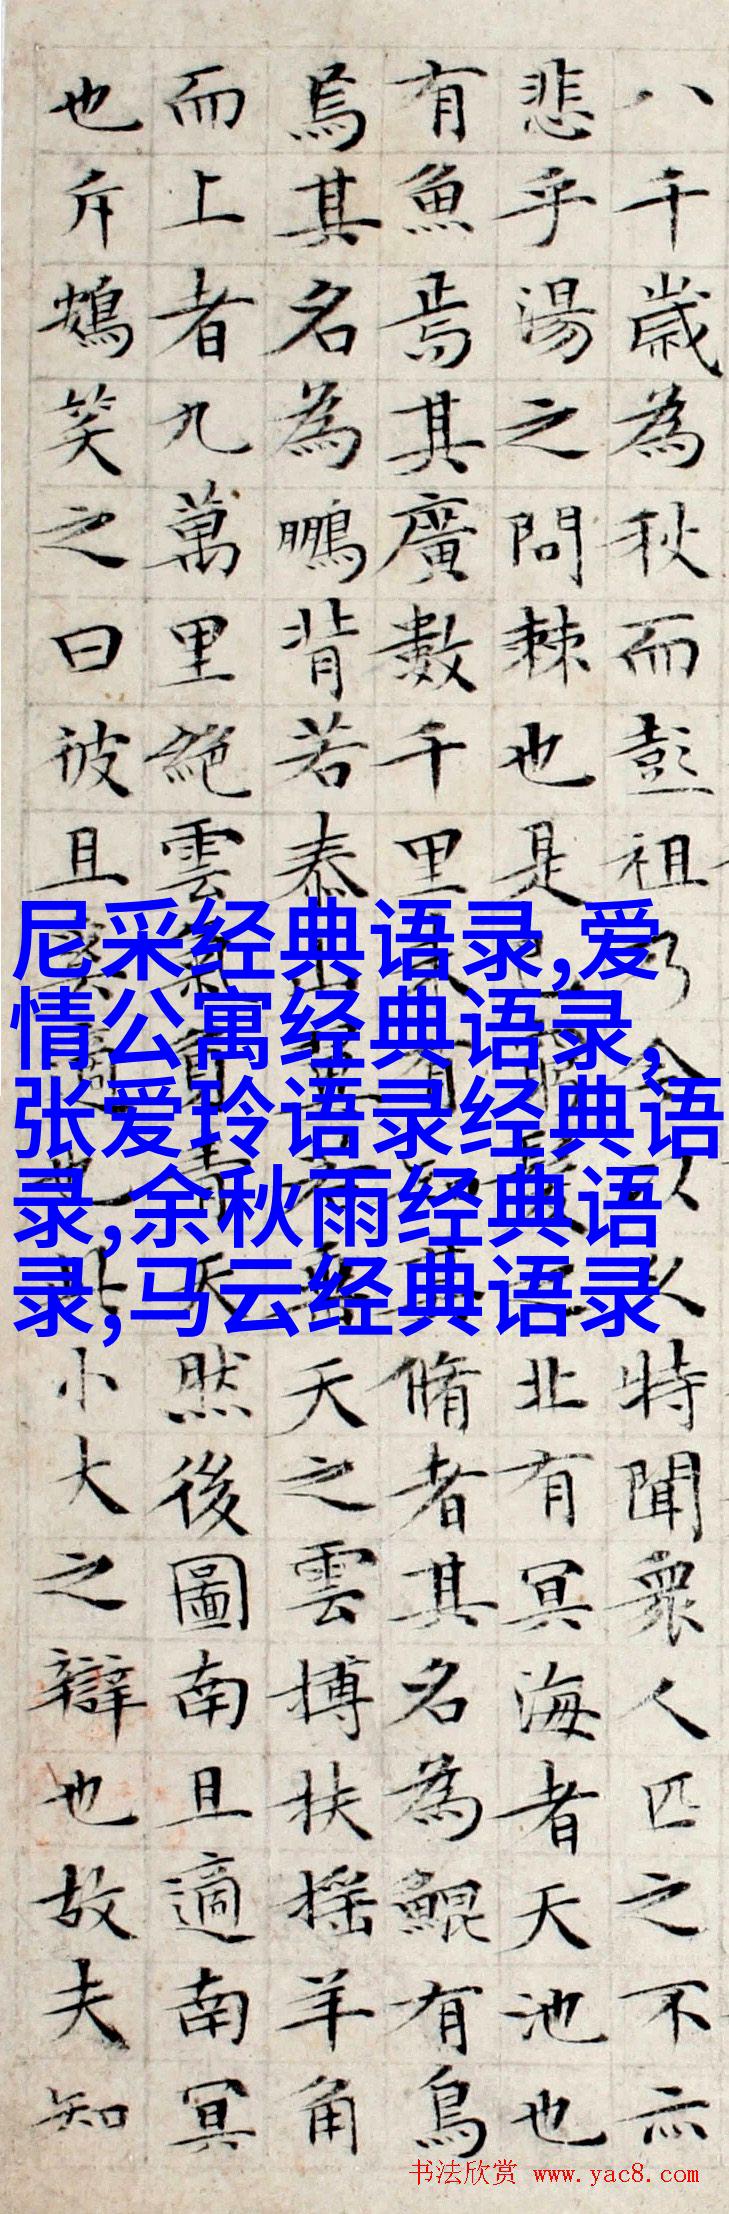 八千歲為秋而彭祖乃今以久特聞衆人匹之不亦
悲乎湯之問棘也是已窮髮之北有冥海者天池也
有魚焉其廣數千里未有知其脩者其名為鯤有鳥
焉其名為鵬背若泰山翼若垂天之雲搏扶搖羊角
而上者九萬里絕雲氣負青天然後圖南且適南冥
也斥鴳笑之曰彼且奚適也此小大之辯也故夫知
尼采经典语录,爱
情公寓经典语录,
张爱玲语录经典语
录,余秋雨经典语
录,马云经典语录
书法欣赏 www.yac8.com